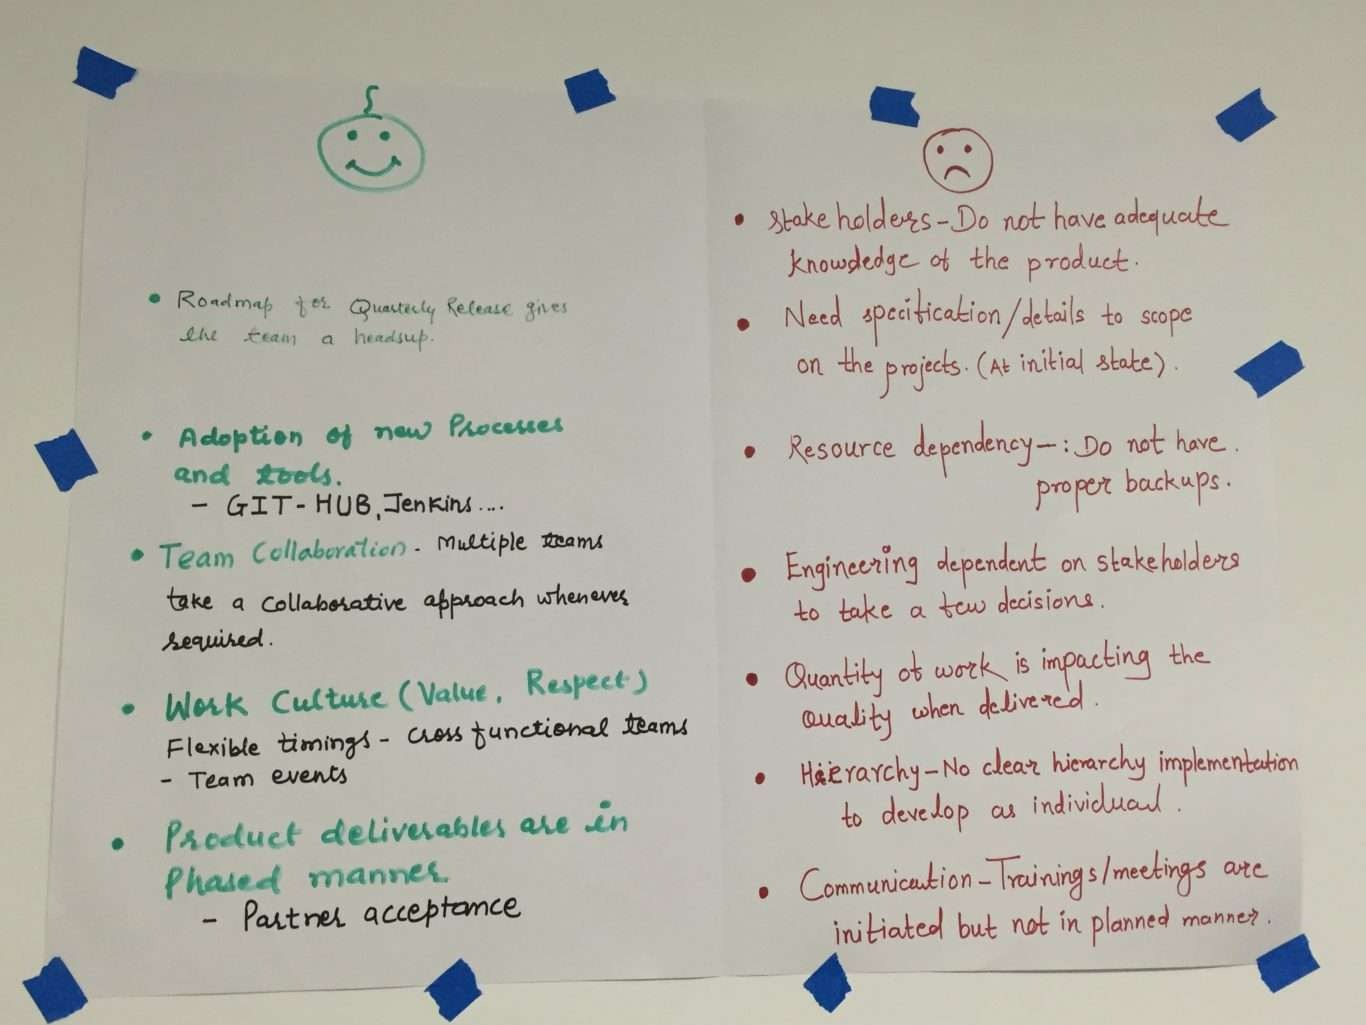 • Roadmap for Quarterly Release gives
the team a headsup.
• Adoption of new Processes
and tools.
- GIT-HUB, Jenkins....
• Team Collaboration - Multiple teams
take a collaborative approach whenever
required.
• Work Culture (Value, Respect)
Flexible timings - cross functional teams
- Team events
• Product deliverables are in
Phased manner.
- Partner acceptance
• Stakeholders - Do not have adequate
knowdedge of the product.
• Need specification/details to scope
on the projects. (At initial state).
• Resource dependency - : Do not have.
proper backups.
• Engineering dependent on stakeholders
to take a few decisions.
• Quantity of work is impacting the
Quality when delivered.
• Hierarchy - No clear hierarchy implementation
to develop as individual.
• Communication - Trainings/meetings are
initiated but not in planned manner.